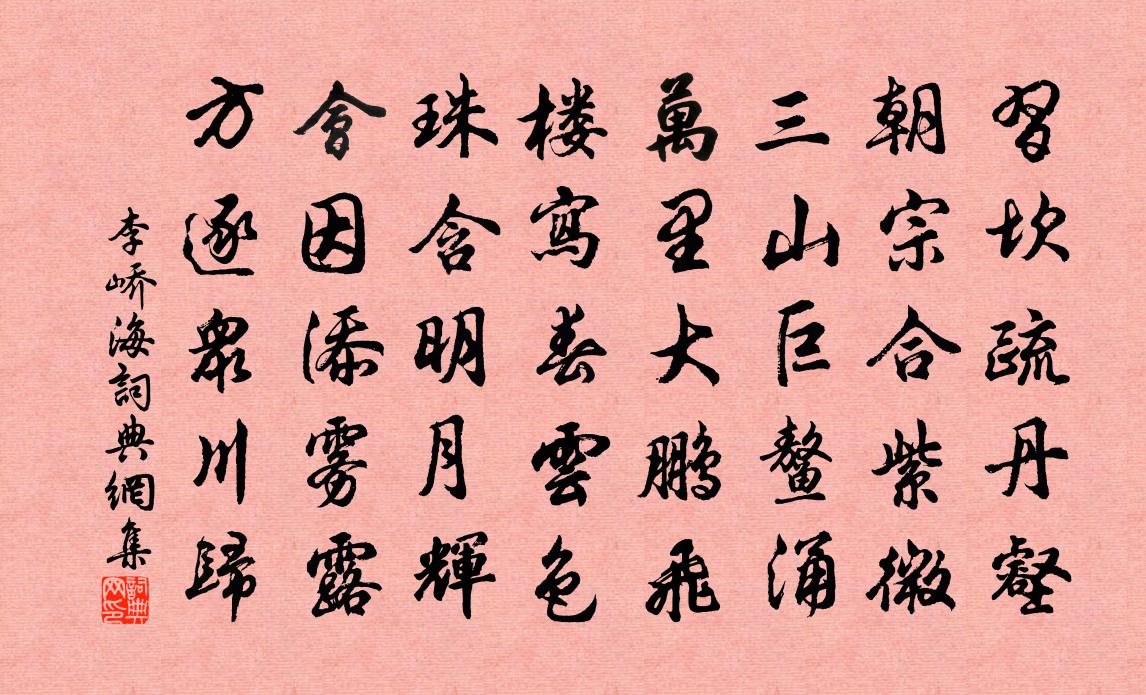 習坎疏丹壑
朝宗合紫微
三山巨鼇涌
萬里大鵬飛
楼寫春雲色
珠含明月輝
會因添雾露
方逐眾川歸
李嶠海詞典網集
詞典网印